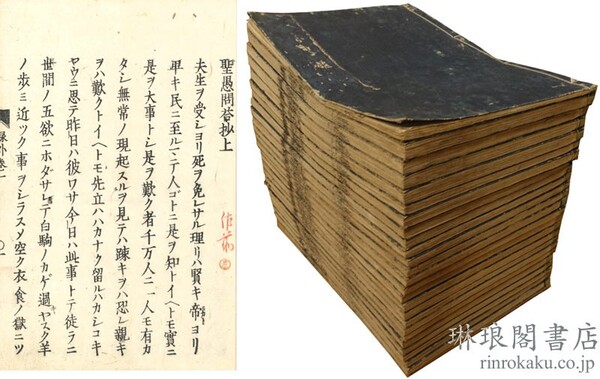 聖愚問答抄上
夫生ヲ受シヨリ死ヲ免レサル理リハ賢キ帝ヨリ
卑キ民ニ至ルマテ人コトニ是ヲ知トイヘトモ實ニ
是ヲ大事トシ是ヲ歎ク者千万人ニ一人モ有カ
タシ無常ノ現起スルヲ見テハ踈キヲハ恐レ親キ
ヲハ歎クトイヘトモ先立ハハカナク留ルハカシコキ
ヤウニ思テ昨日ハ彼ワサ今日ハ此事トテ徒ラニ
世間ノ五欲ニホダサレテ白駒ノカゲ過ヤスク羊
ノ歩ミ近ツク事ヲシラスメ空ク衣食ノ獄ニツ
録外卷一
〇一
琳琅閣書店
rinrokaku.co.jp